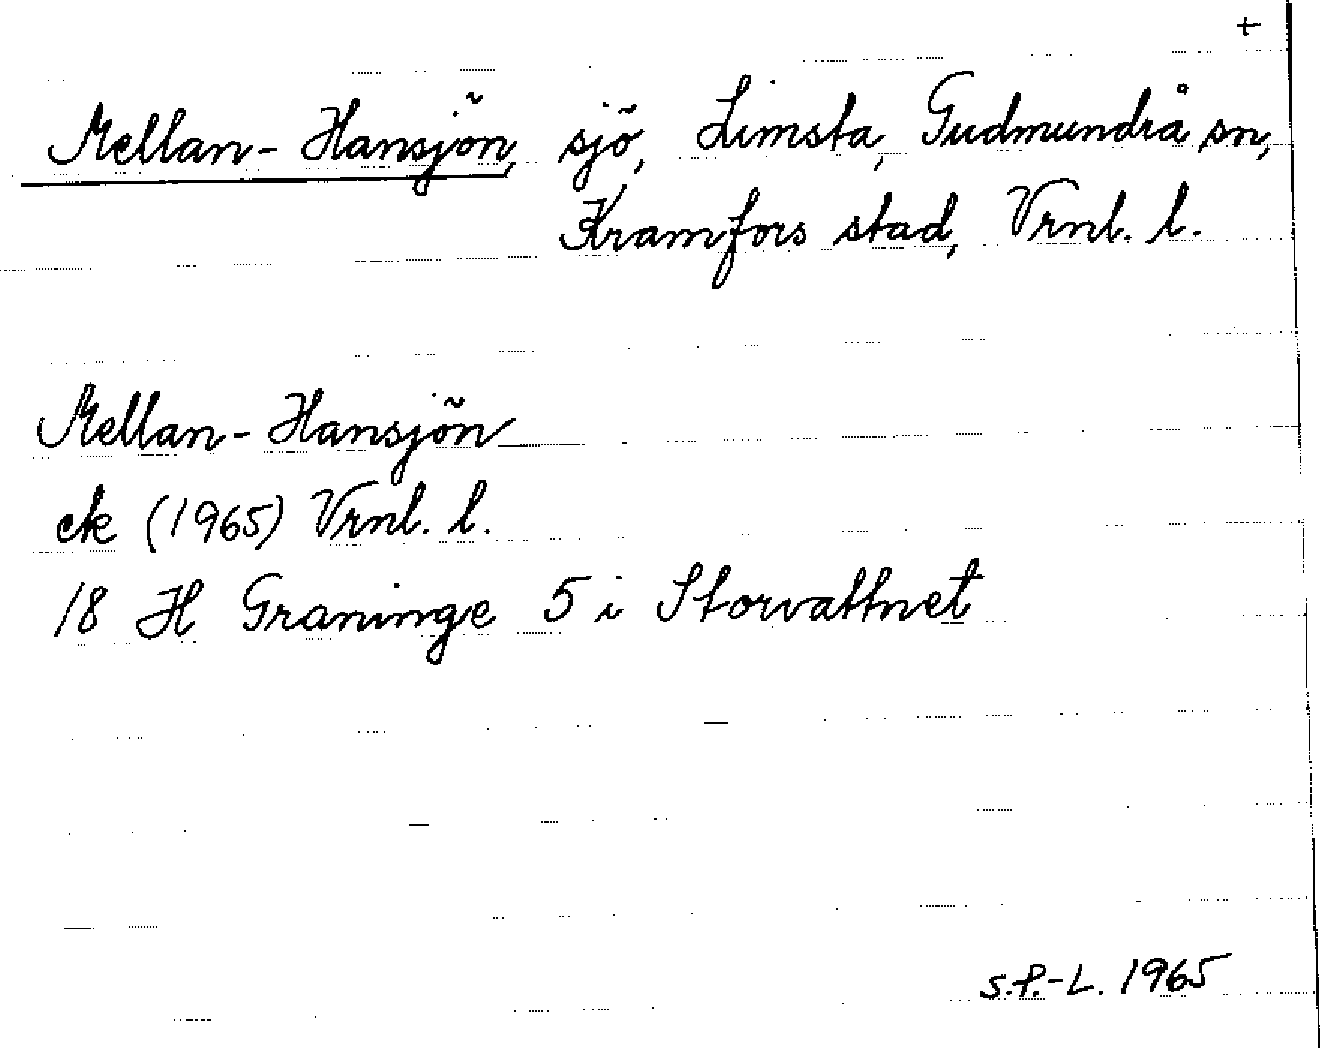 +
Mellan-Hansjön, sjö, Limsta, Gudmundrå sn,
Kramfors stad, Vrnl. l.
Mellan-Hansjön
ek (1965) Vrnl. l.
18 H Graninge 5 i Storvattnet
S.P.-L. 1965